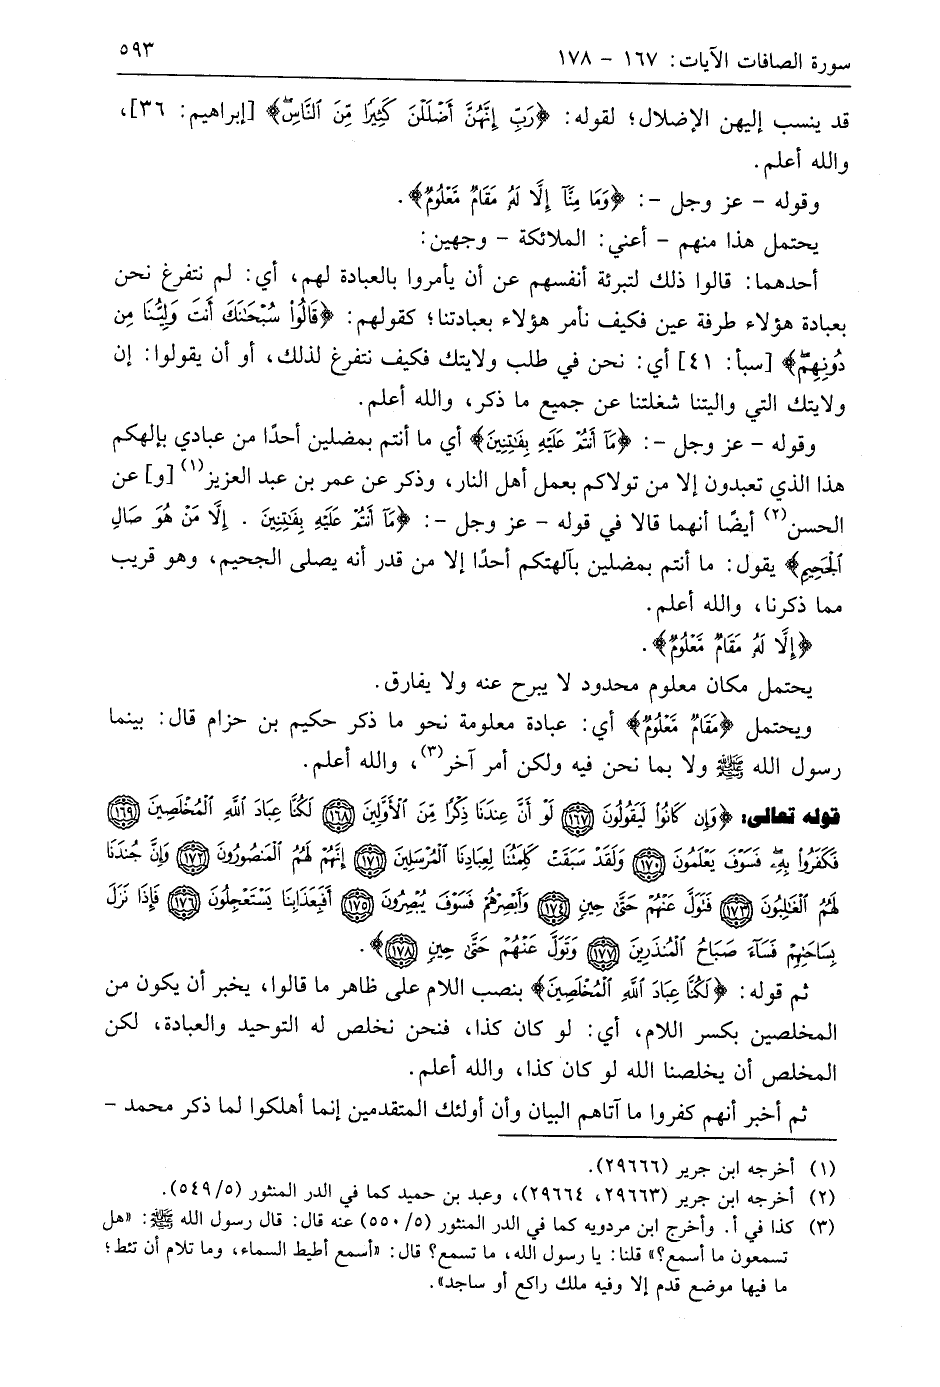 سورة الصافات الآيات: ١٦٧ - ١٧٨ ٥٩٣
قد ينسب إليهن الإضلال؛ لقوله: ﴿رَبِّ إِنَّهُنَّ أَضْلَلْنَ كَثِيرًا مِّنَ ٱلنَّاسِۖ﴾ [إبراهيم: ٣٦]،
والله أعلم.
وقوله - عز وجل -: ﴿وَمَا مِنَّآ إِلَّا لَهُۥ مَقَامٌ مَّعْلُومٌ﴾.
يحتمل هذا منهم - أعني: الملائكة - وجهين:
أحدهما: قالوا ذلك لتبرئة أنفسهم عن أن يأمروا بالعبادة لهم، أي: لم نتفرغ نحن
بعبادة هؤلاء طرفة عين فكيف نأمر هؤلاء بعبادتنا؛ كقولهم: ﴿قَالُوا۟ سُبْحَٰنَكَ أَنتَ وَلِيُّنَا مِن
دُونِهِمۖ﴾ [سبأ: ٤١] أي: نحن في طلب ولايتك فكيف نتفرغ لذلك، أو أن يقولوا: إن
ولايتك التي واليتنا شغلتنا عن جميع ما ذكر، والله أعلم.
وقوله - عز وجل -: ﴿مَآ أَنتُمْ عَلَيْهِ بِفَٰتِنِينَ﴾ أي ما أنتم بمضلين أحدًا من عبادي بإلهكم
هذا الذي تعبدون إلا من تولاكم بعمل أهل النار، وذكر عن عمر بن عبد العزيز(١) [و] عن
الحسن(٢) أيضًا أنهما قالا في قوله - عز وجل -: ﴿مَآ أَنتُمْ عَلَيْهِ بِفَٰتِنِينَ . إِلَّا مَنْ هُوَ صَالِ
ٱلْجَحِيمِ﴾ يقول: ما أنتم بمضلين بآلهتكم أحدًا إلا من قدر أنه يصلى الجحيم، وهو قريب
مما ذكرنا، والله أعلم.
﴿إِلَّا لَهُۥ مَقَامٌ مَّعْلُومٌ﴾.
يحتمل مكان معلوم محدود لا يبرح عنه ولا يفارق.
ويحتمل ﴿مَقَامٌ مَّعْلُومٌ﴾ أي: عبادة معلومة نحو ما ذكر حكيم بن حزام قال: بينما
رسول الله ﷺ ولا بما نحن فيه ولكن أمر آخر(٣)، والله أعلم.
قوله تعالى: ﴿وَإِن كَانُوا۟ لَيَقُولُونَ ١٦٧ لَوْ أَنَّ عِندَنَا ذِكْرًا مِّنَ ٱلْأَوَّلِينَ ١٦٨ لَكُنَّا عِبَادَ ٱللَّهِ ٱلْمُخْلَصِينَ ١٦٩
فَكَفَرُوا۟ بِهِۦۖ فَسَوْفَ يَعْلَمُونَ ١٧٠ وَلَقَدْ سَبَقَتْ كَلِمَتُنَا لِعِبَادِنَا ٱلْمُرْسَلِينَ ١٧١ إِنَّهُمْ لَهُمُ ٱلْمَنصُورُونَ ١٧٢ وَإِنَّ جُندَنَا
لَهُمُ ٱلْغَٰلِبُونَ ١٧٣ فَتَوَلَّ عَنْهُمْ حَتَّىٰ حِينٍ ١٧٤ وَأَبْصِرْهُمْ فَسَوْفَ يُبْصِرُونَ ١٧٥ أَفَبِعَذَابِنَا يَسْتَعْجِلُونَ ١٧٦ فَإِذَا نَزَلَ
بِسَاحَتِهِمْ فَسَآءَ صَبَاحُ ٱلْمُنذَرِينَ ١٧٧ وَتَوَلَّ عَنْهُمْ حَتَّىٰ حِينٍ ١٧٨﴾.
ثم قوله: ﴿لَكُنَّا عِبَادَ ٱللَّهِ ٱلْمُخْلَصِينَ﴾ بنصب اللام على ظاهر ما قالوا، يخبر أن يكون من
المخلصين بكسر اللام، أي: لو كان كذا، فنحن نخلص له التوحيد والعبادة، لكن
المخلص أن يخلصنا الله لو كان كذا، والله أعلم.
ثم أخبر أنهم كفروا ما آتاهم البيان وأن أولئك المتقدمين إنما أهلكوا لما ذكر محمد -
(١) أخرجه ابن جرير (٢٩٦٦٦).
(٢) أخرجه ابن جرير (٢٩٦٦٣، ٢٩٦٦٤)، وعبد بن حميد كما في الدر المنثور (٥/٥٤٩).
(٣) كذا في أ. وأخرج ابن مردويه كما في الدر المنثور (٥/٥٥٠) عنه قال: قال رسول الله ﷺ: «هل
تسمعون ما أسمع؟» قلنا: يا رسول الله، ما تسمع؟ قال: «أسمع أطيط السماء، وما تلام أن تئط؛
ما فيها موضع قدم إلا وفيه ملك راكع أو ساجد».